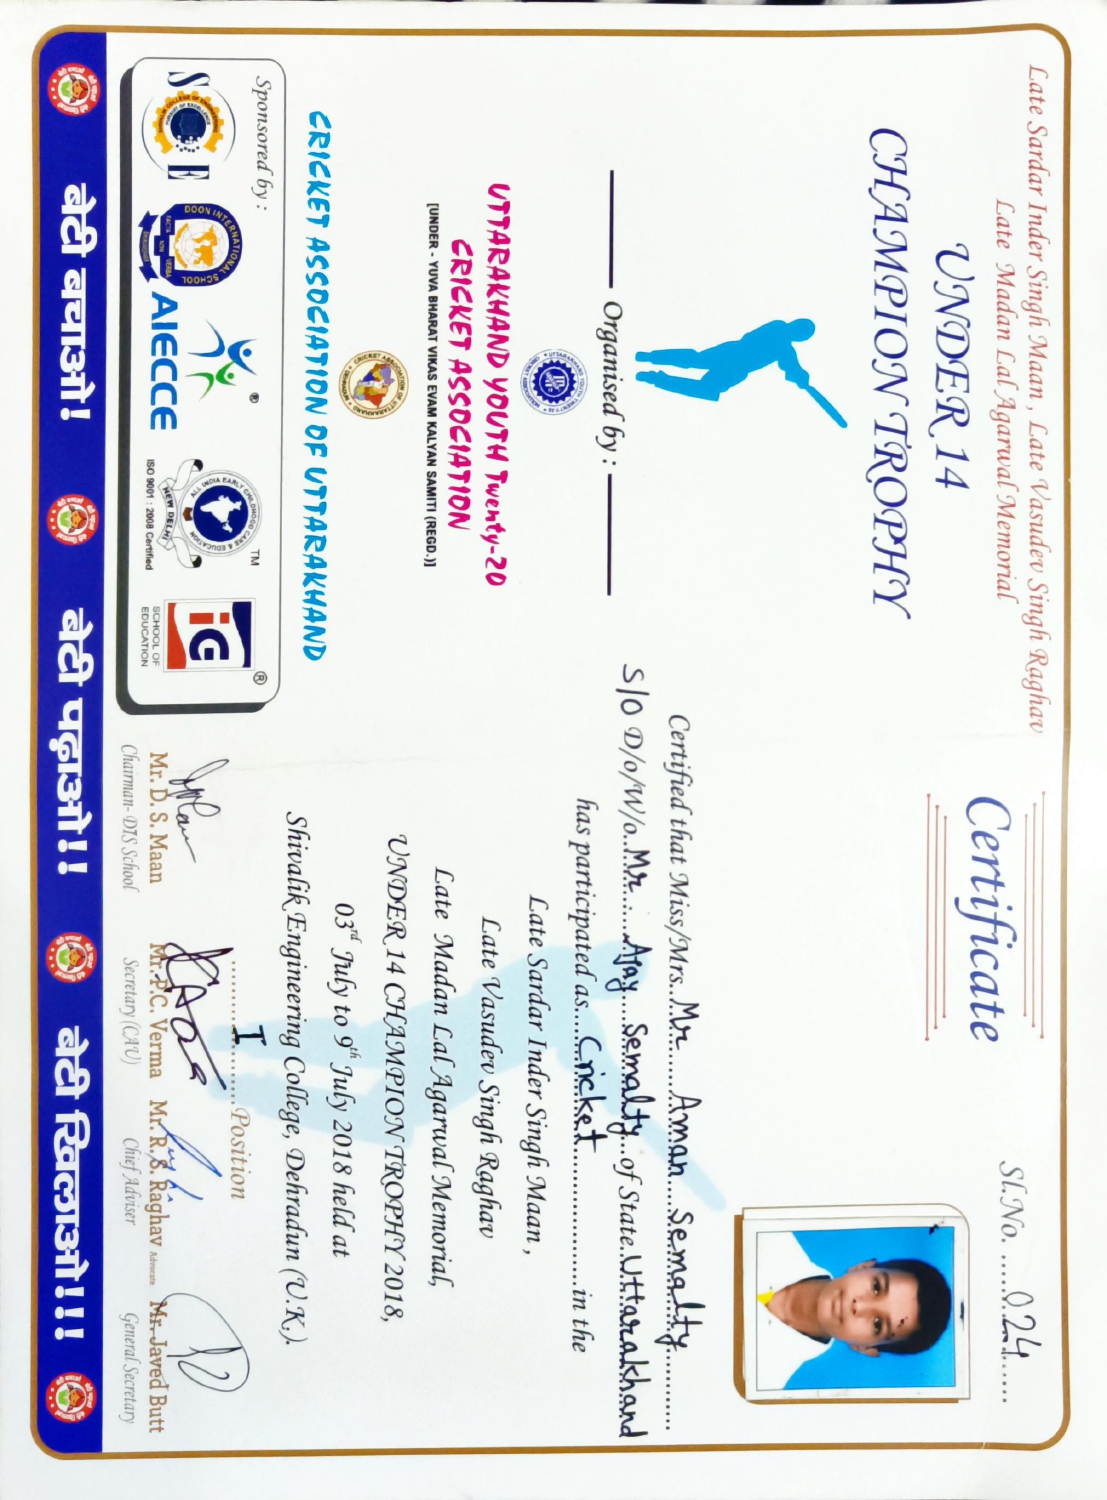 Late Sardar Inder Singh Maan , Late Vasudev Singh Raghav
Late Madan Lal Agarwal Memorial
UNDER 14
CHAMPION TROPHY
Organised by :
UTTARAKHAND YOUTH TWENTY-20
CRICKET ASSOCIATION
UTTARAKHAND YOUTH Twenty-20
CRICKET ASSOCIATION
[UNDER - YUVA BHARAT VIKAS EVAM KALYAN SAMITI (REGD.)]
CRICKET ASSOCIATION OF UTTARAKHAND
DEHRADUN
CRICKET ASSOCIATION OF UTTARAKHAND
Sponsored by :
S E
DOON INTERNATIONAL SCHOOL
FACTA NON VERBA
AIECCE ®
ALL INDIA EARLY CHILDHOOD CARE & EDUCATION
TM
NEW DELHI
ISO 9001 : 2008 Certified
iG ®
SCHOOL OF
EDUCATION
Certificate
Sl.No. ....024.......
Certified that Miss/Mrs..Mr Aman Semalty
S/O D/o/W/o..Mr. Ajay Semalty...of State..Uttarakhand
has participated as....Cricket....................in the
Late Sardar Inder Singh Maan ,
Late Vasudev Singh Raghav
Late Madan Lal Agarwal Memorial,
UNDER 14 CHAMPION TROPHY 2018,
03rd July to 9th July 2018 held at
Shivalik Engineering College, Dehradun (U.K.).
I Position
Mr. D. S. Maan
Chairman- DIS School
Mr. P.C. Verma
Secretary (CAU)
Mr. R. S. Raghav Advocate
Chief Adviser
Mr. Javed Butt
General Secretary
बेटी बचाओ! बेटी पढ़ाओ!! बेटी खिलाओ!!!